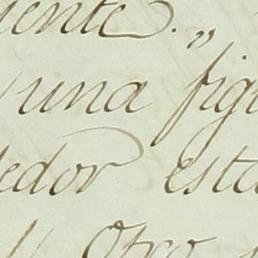 iente . „
una figu
dedor esta
Otro